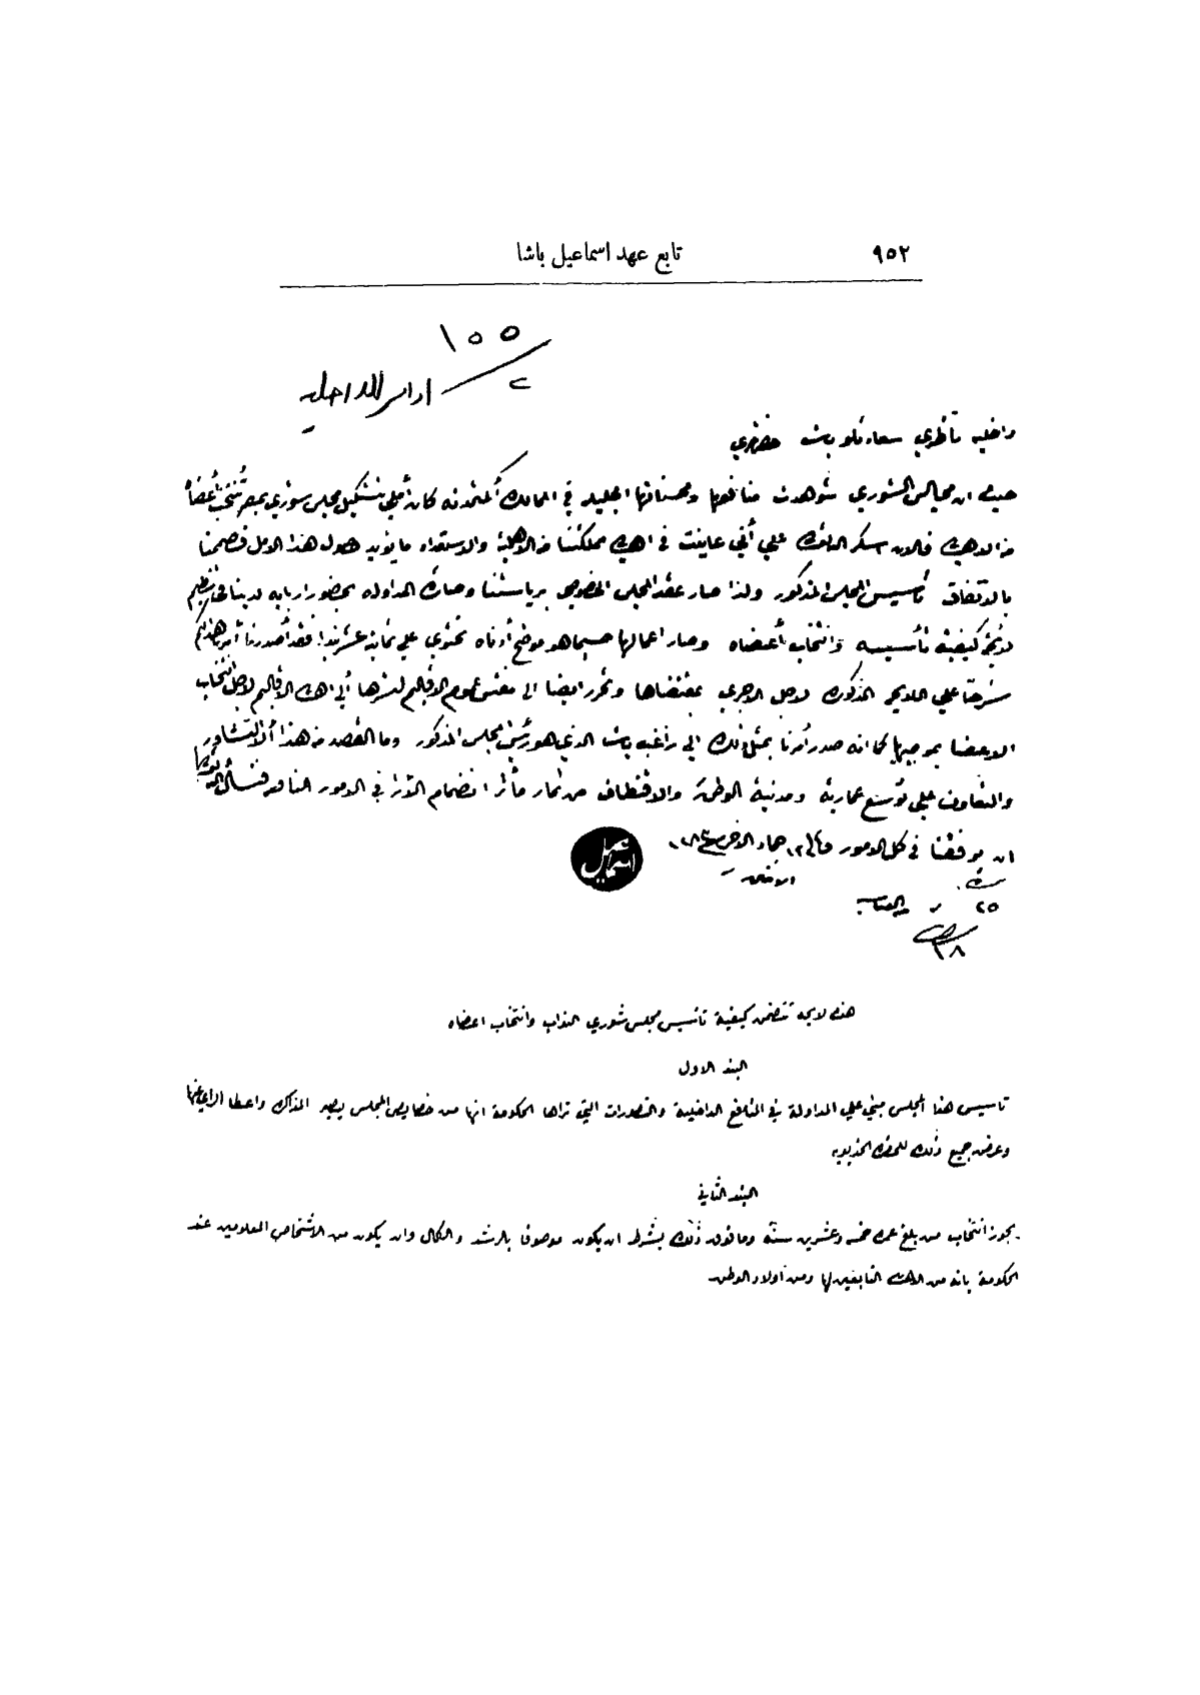 ٩٥٢
تابع عهد اسماعيل باشا
١٥٥
٢
داخليه ناظري سعادتلو باشا حضرتلري
حيث ان مجالس الشوري شوهدت منافعها ومحسناتها الجليلة في الممالك المتمدنه كان أملي تشكيل مجلس شوري بمصر تنتخب أعضاه
من الاهالي فالان اشكر الله علي أني عاينت في اهالي مملكتنا من الاهلية والاستعداد ما يؤيد حصول هذا الامل فصممنا
بالاتفاق تأسيس المجلس المذكور ولذا صار عقد المجلس الخصوصي برياستنا وصارت المداوله بحضور اربابه لدينا في تنظيم
لايحة كيفية تأسيسه وانتخاب أعضاه وصار اعمالها حسبما هو موضح أدناه تحتوي علي ثمانية عشر بندا فقد أصدرنا أمرنا هذا لكم
شرحا علي اللايحه المذكورة لاجل الاجري بمقتضاها وتحرر ايضا الي مفتش عموم الاقاليم لنشرها ألي اهالي الاقاليم لاجل انتخاب
الاعضا بموجبها كما انه صدر أمرنا بمثل ذلك الي راغب باشا الذي هو رئيس المجلس المذكور وما القصد من هذا ألا التشاور
والتعاون علي توسيع عمارية ومدنية الوطن والاقتطاف من ثمار مأثر انضمام الآرا في الامور النافعه فنسأل الله
ان يوفقنا في كل الامور في ١٢ جماد الاخر سنة ١٢٨٣
اسماعيل
٢٥
هذه لايحه تتضمن كيفية تاسيس مجلس شوري النواب وانتخاب اعضاه
البند الاول
تاسيس هذا المجلس مبني علي المداولة في المنافع الداخلية والتصورات التي تراها الحكومة انها من خصايص المجلس يصير المذاكرة واعطا الراي عنها
وعرض جميع ذلك للحضرة الخديويه
البند الثاني
يجوز انتخاب من بلغ عمره خمسه وعشرين سنة وما فوق ذلك بشرط ان يكون موصوفا بالرشد والكمال وان يكون من الاشخاص المعلومين عند
الحكومة بانه من الاهالي التابعين لها ومن اولاد الوطن